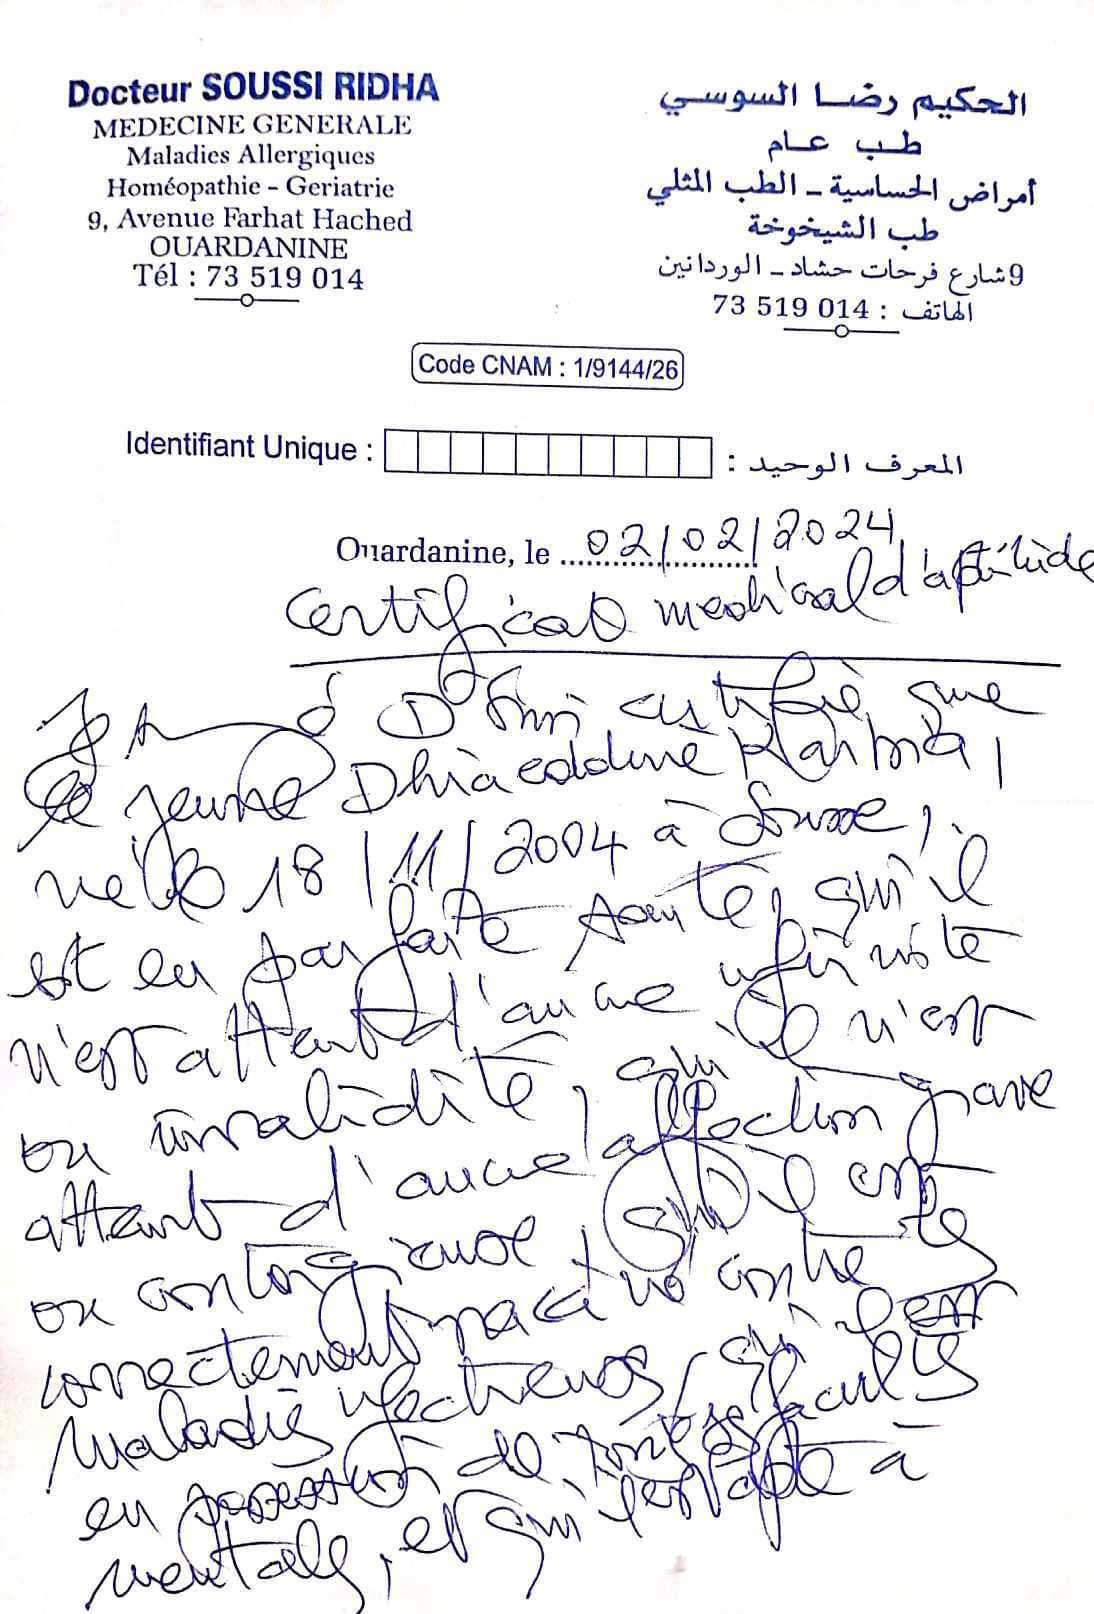 Docteur SOUSSI RIDHA
MEDECINE GENERALE
Maladies Allergiques
Homéopathie - Geriatrie
9, Avenue Farhat Hached
OUARDANINE
Tél : 73 519 014
الحكيم رضا السوسي
طب عام
أمراض الحساسية - الطب المثلي
طب الشيخوخة
9 شارع فرحات حشاد - الوردانين
الهاتف : 014 519 73
Code CNAM : 1/9144/26
Identifiant Unique : المعرف الوحيد :
Ouardanine, le 02/02/2024
Certificat médical d'aptitude
certifie que
le jeune Dhiaeddine
né le 18/11/2004 à Sousse,
est en parfaite santé, qu'il
n'est atteint d'aucune infirmité
ou invalidité, qu'il n'est
atteint d'aucune affection grave
ou contagieuse, qu'il est
correctement vacciné contre les
maladies infectieuses, qu'il est
en possession de toutes facultés
mentales, et qu'il est apte à